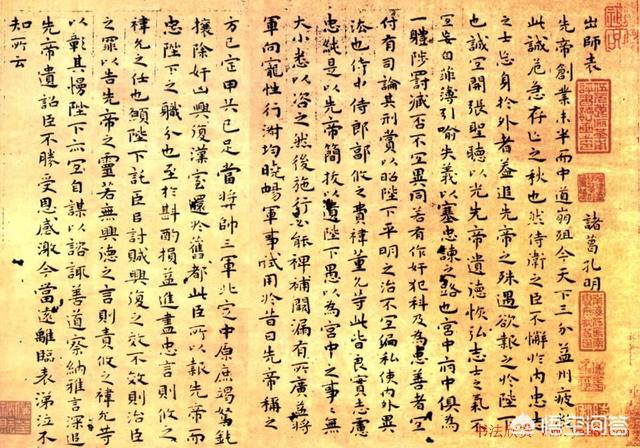 出師表 諸葛孔明
先帝創業未半而中道崩殂今天下三分益州疲弊
此誠危急存亡之秋也然侍衛之臣不懈於內忠志
之士忘身於外者蓋追先帝之殊遇欲報之於陛下
也誠宜開張聖聽以光先帝遺德恢弘志士之氣不
宜妄自菲薄引喻失義以塞忠諫之路也宮中府中俱為
一體陟罰臧否不宜異同若有作奸犯科及為忠善者宜
付有司論其刑賞以昭陛下平明之治不宜偏私使內外異
法也侍中侍郎郭攸之費禕董允等此皆良實志慮
忠純是以先帝簡拔以遺陛下愚以為宮中之事事無
大小悉以咨之然後施行必能裨補闕漏有所廣益將
軍向寵性行淑均曉暢軍事試用於昔日先帝稱之
方已定甲兵已足當獎帥三軍北定中原庶竭駑鈍
攘除奸凶興復漢室還於舊都此臣所以報先帝而
忠陛下之職分也至於斟酌損益進盡忠言則攸之
禕允之任也願陛下託臣以討賊興復之效不效則治臣
之罪以告先帝之靈若無興德之言則責攸之禕允等
以彰其慢陛下亦宜自謀以諮諏善道察納雅言深追
先帝遺詔臣不勝受恩感激今當遠離臨表涕泣不
知所云
书法欣赏
悟空问答